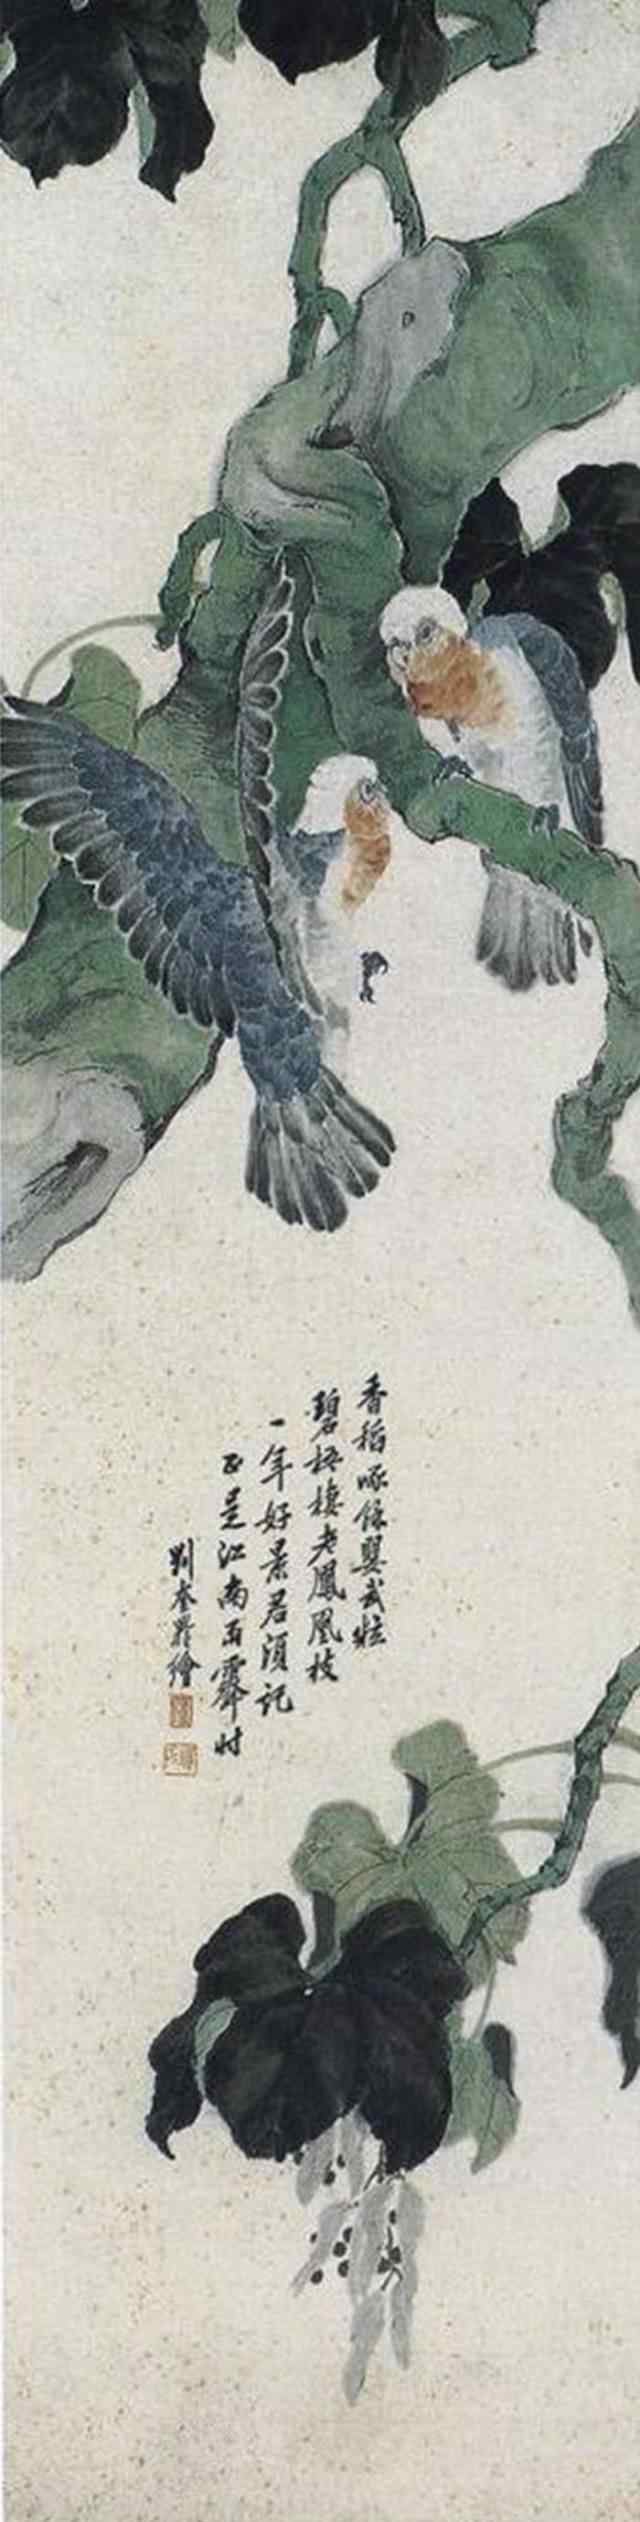 香稻啄餘嬰武粒
碧梧棲老鳳凰枝
一年好景君須記
正是江南雨霽时
劉奎齡繪